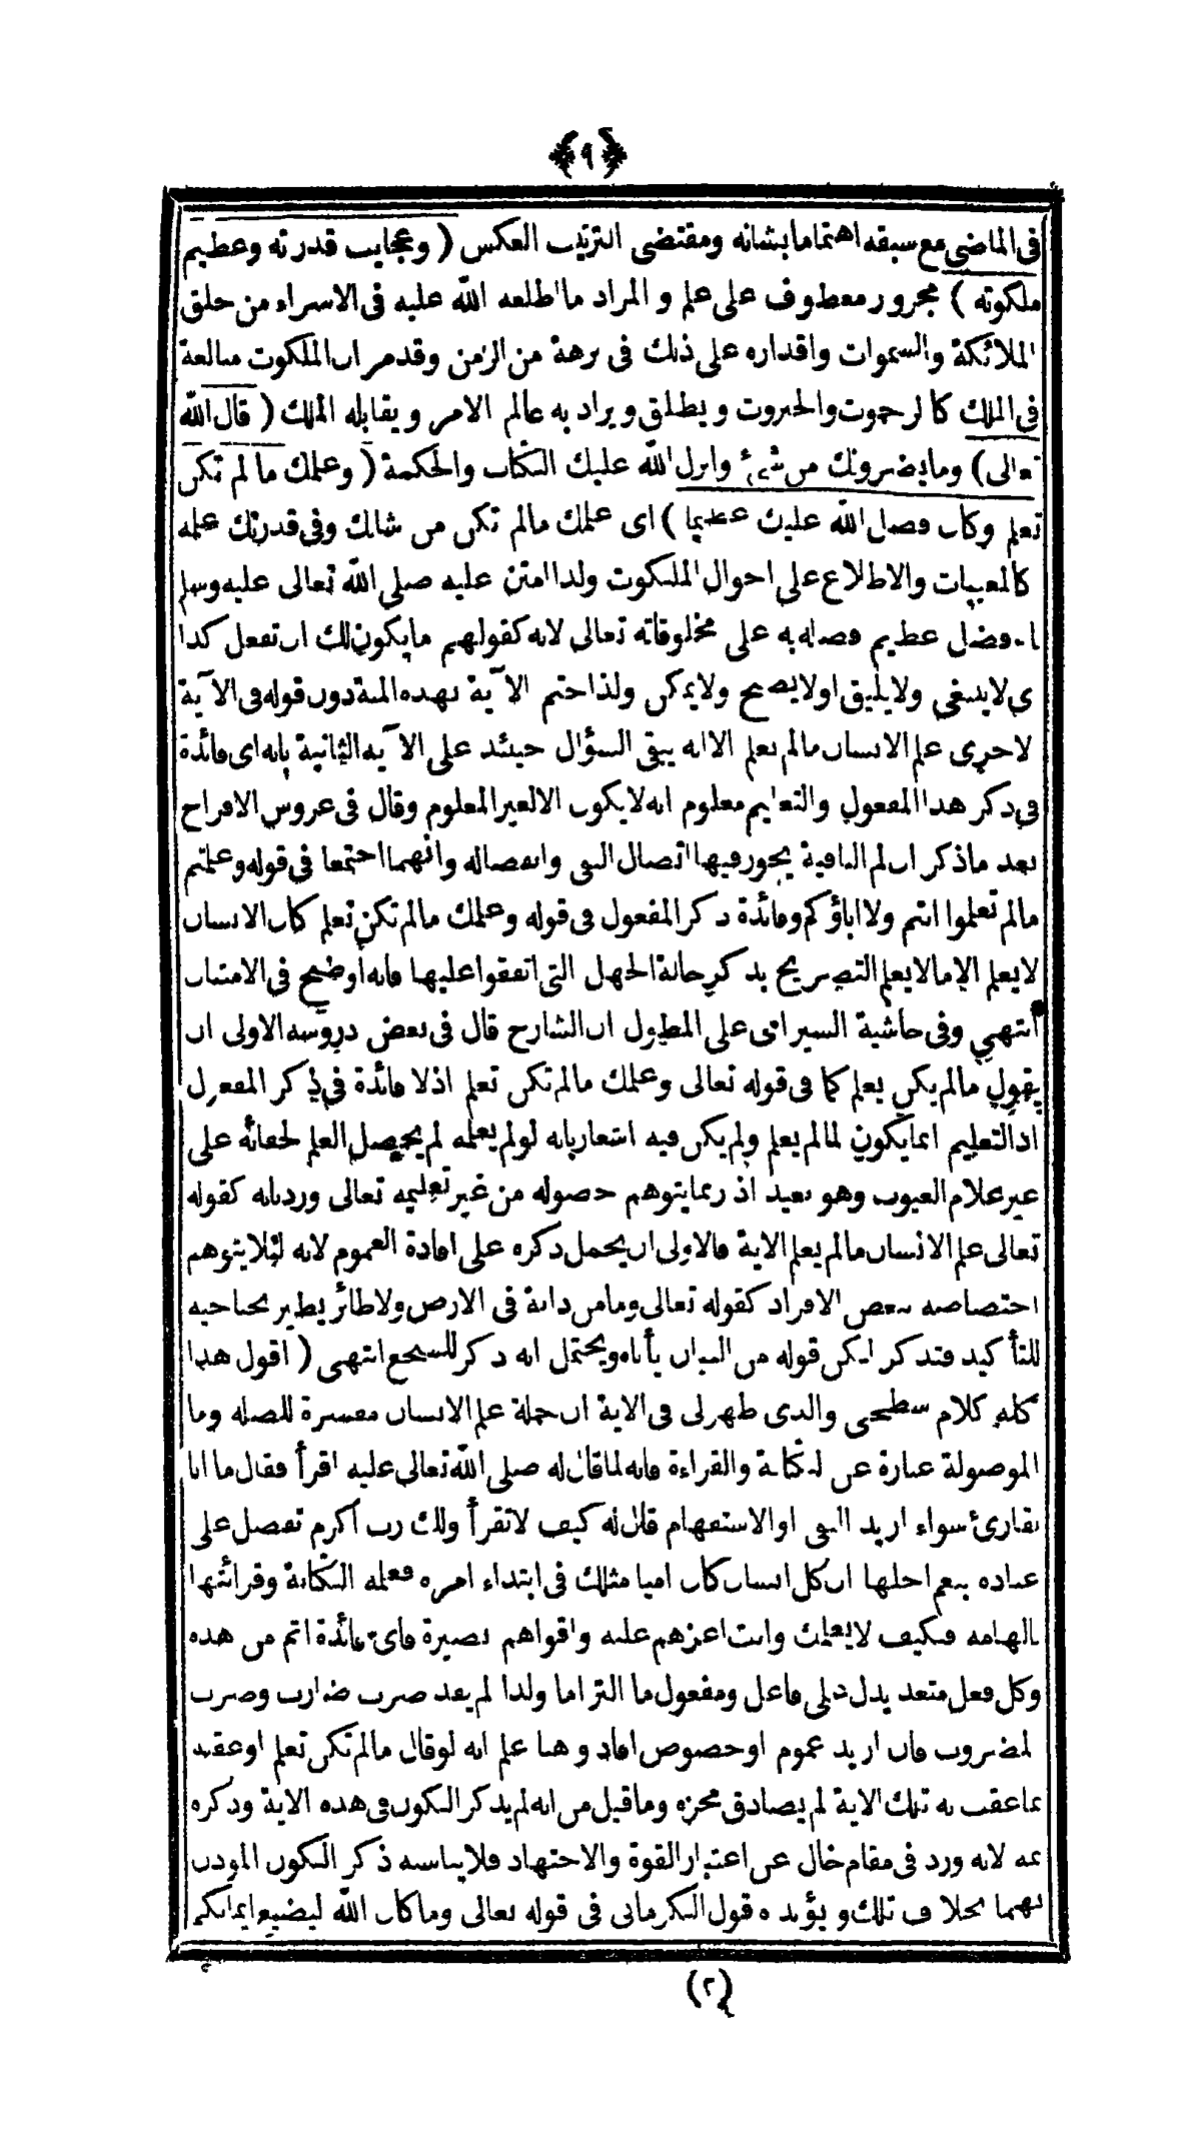 ﴿٩﴾
فى الماضى مع سبقه اهتماما بشانه ومقتضى الترتيب العكس ( وعجايب قدرته وعظيم
ملكوته ) مجرور معطوف على علم و المراد ما اطلعه الله عليه فى الاسراء من خلق
الملائكة والسموات واقداره على ذلك فى برهة من الزمن وقد مر ان الملكوت مبالغة
فى الملك كالرحموت والجبروت و يطلق و يراد به عالم الامر و يقابله الملك ( قال الله
تعالى ) وما يضرونك من شئ وانزل الله عليك الكتاب والحكمة ( وعلمك ما لم تكن
تعلم وكان فضل الله عليك عظيما ) اى علمك مالم تكن من شانك وفى قدرتك علمه
كالمغيبات والاطلاع على احوال الملكوت ولذا امتن عليه صلى الله تعالى عليه وسلم
فضل عظيم فضله به على مخلوقاته تعالى لانه كقولهم ما يكون لك ان تفعل كذا
ى لا ينبغى ولا يليق او لا يصح ولا يمكن ولذا ختم الآية بهذه المنة دون قوله فى الآية
لاخرى علم الانسان مالم يعلم الا انه يبقى السؤال حينئذ على الآية الثانية بانه اى فائدة
فى ذكر هذا المفعول والتعليم معلوم انه لا يكون الا لغير المعلوم وقال فى عروس الافراح
بعد ماذكر ان لم النافية يجوز فيها اتصال النفى وانفصاله وانهما اجتمعا فى قوله وعلمتم
مالم تعلموا انتم ولا اباؤكم وفائدة ذكر المفعول فى قوله وعلمك مالم تكن تعلم كان الانسان
لا يعلم الا مالا يعلم التصريح بذكر حالة الجهل التى اتفقوا عليها فانه اوضح فى الامتنان
انتهى وفى حاشية السيرامى على المطول ان الشارح قال فى بعض دروسه الاولى ان
يقول مالم يكن يعلم كما فى قوله تعالى وعلمك مالم تكن تعلم اذ لا فائدة فى ذكر المفعول
اذ التعليم انما يكون لما لم يعلم ولم يكن فيه اشعار بانه لو لم يعلمه لم يحصل العلم لخفائه على
غير علام الغيوب وهو بعيد اذ ربما يتوهم حصوله من غير تعليمه تعالى ورد بانه كقوله
تعالى علم الانسان مالم يعلم الاية فالاولى ان يحمل ذكره على افادة العموم لانه لئلا يتوهم
اختصاصه ببعض الافراد كقوله تعالى وما من دابة فى الارض ولا طائر يطير بجناحيه
للتأكيد فتذكر لكن قوله من البيان يأباه ويحتمل انه ذكر للسجع انتهى ( اقول هذا
كله كلام سطحى والذى ظهر لى فى الاية ان جملة علم الانسان مفسرة للصله وما
الموصولة عبارة عن الكتابة والقراءة فانه لما قال له صلى الله تعالى عليه اقرأ فقال ما انا
بقارئ سواء اريد النفى او الاستفهام قال له كيف لا تقرأ ولك رب اكرم تفضل على
عباده بنعم اجلها ان كل انسان كان اميا مثلك فى ابتداء امره فعلمه الكتابة وقرائتها
بالهامه فكيف لا يعلمك وانت اعزهم عليه واقواهم بصيرة فاى فائدة اتم من هذه
وكل فعل متعد يدل على فاعل ومفعول ما التزاما ولذا لم يفد ضرب ضارب وضرب
لمضروب فان اريد عموم او خصوص افاد و هنا علم انه لو قال مالم تكن تعلم او عقبه
بما عقب به تلك الاية لم يصادق محزه وما قيل من انه لم يذكر الكون فى هذه الاية وذكره
ثمه لانه ورد فى مقام خال عن اعتبار القوة والاجتهاد فلا يناسبه ذكر الكون المؤذن
بهما بخلاف تلك و يؤيده قول الكرمانى فى قوله تعالى وما كان الله ليضيع ايمانكم
(٢)